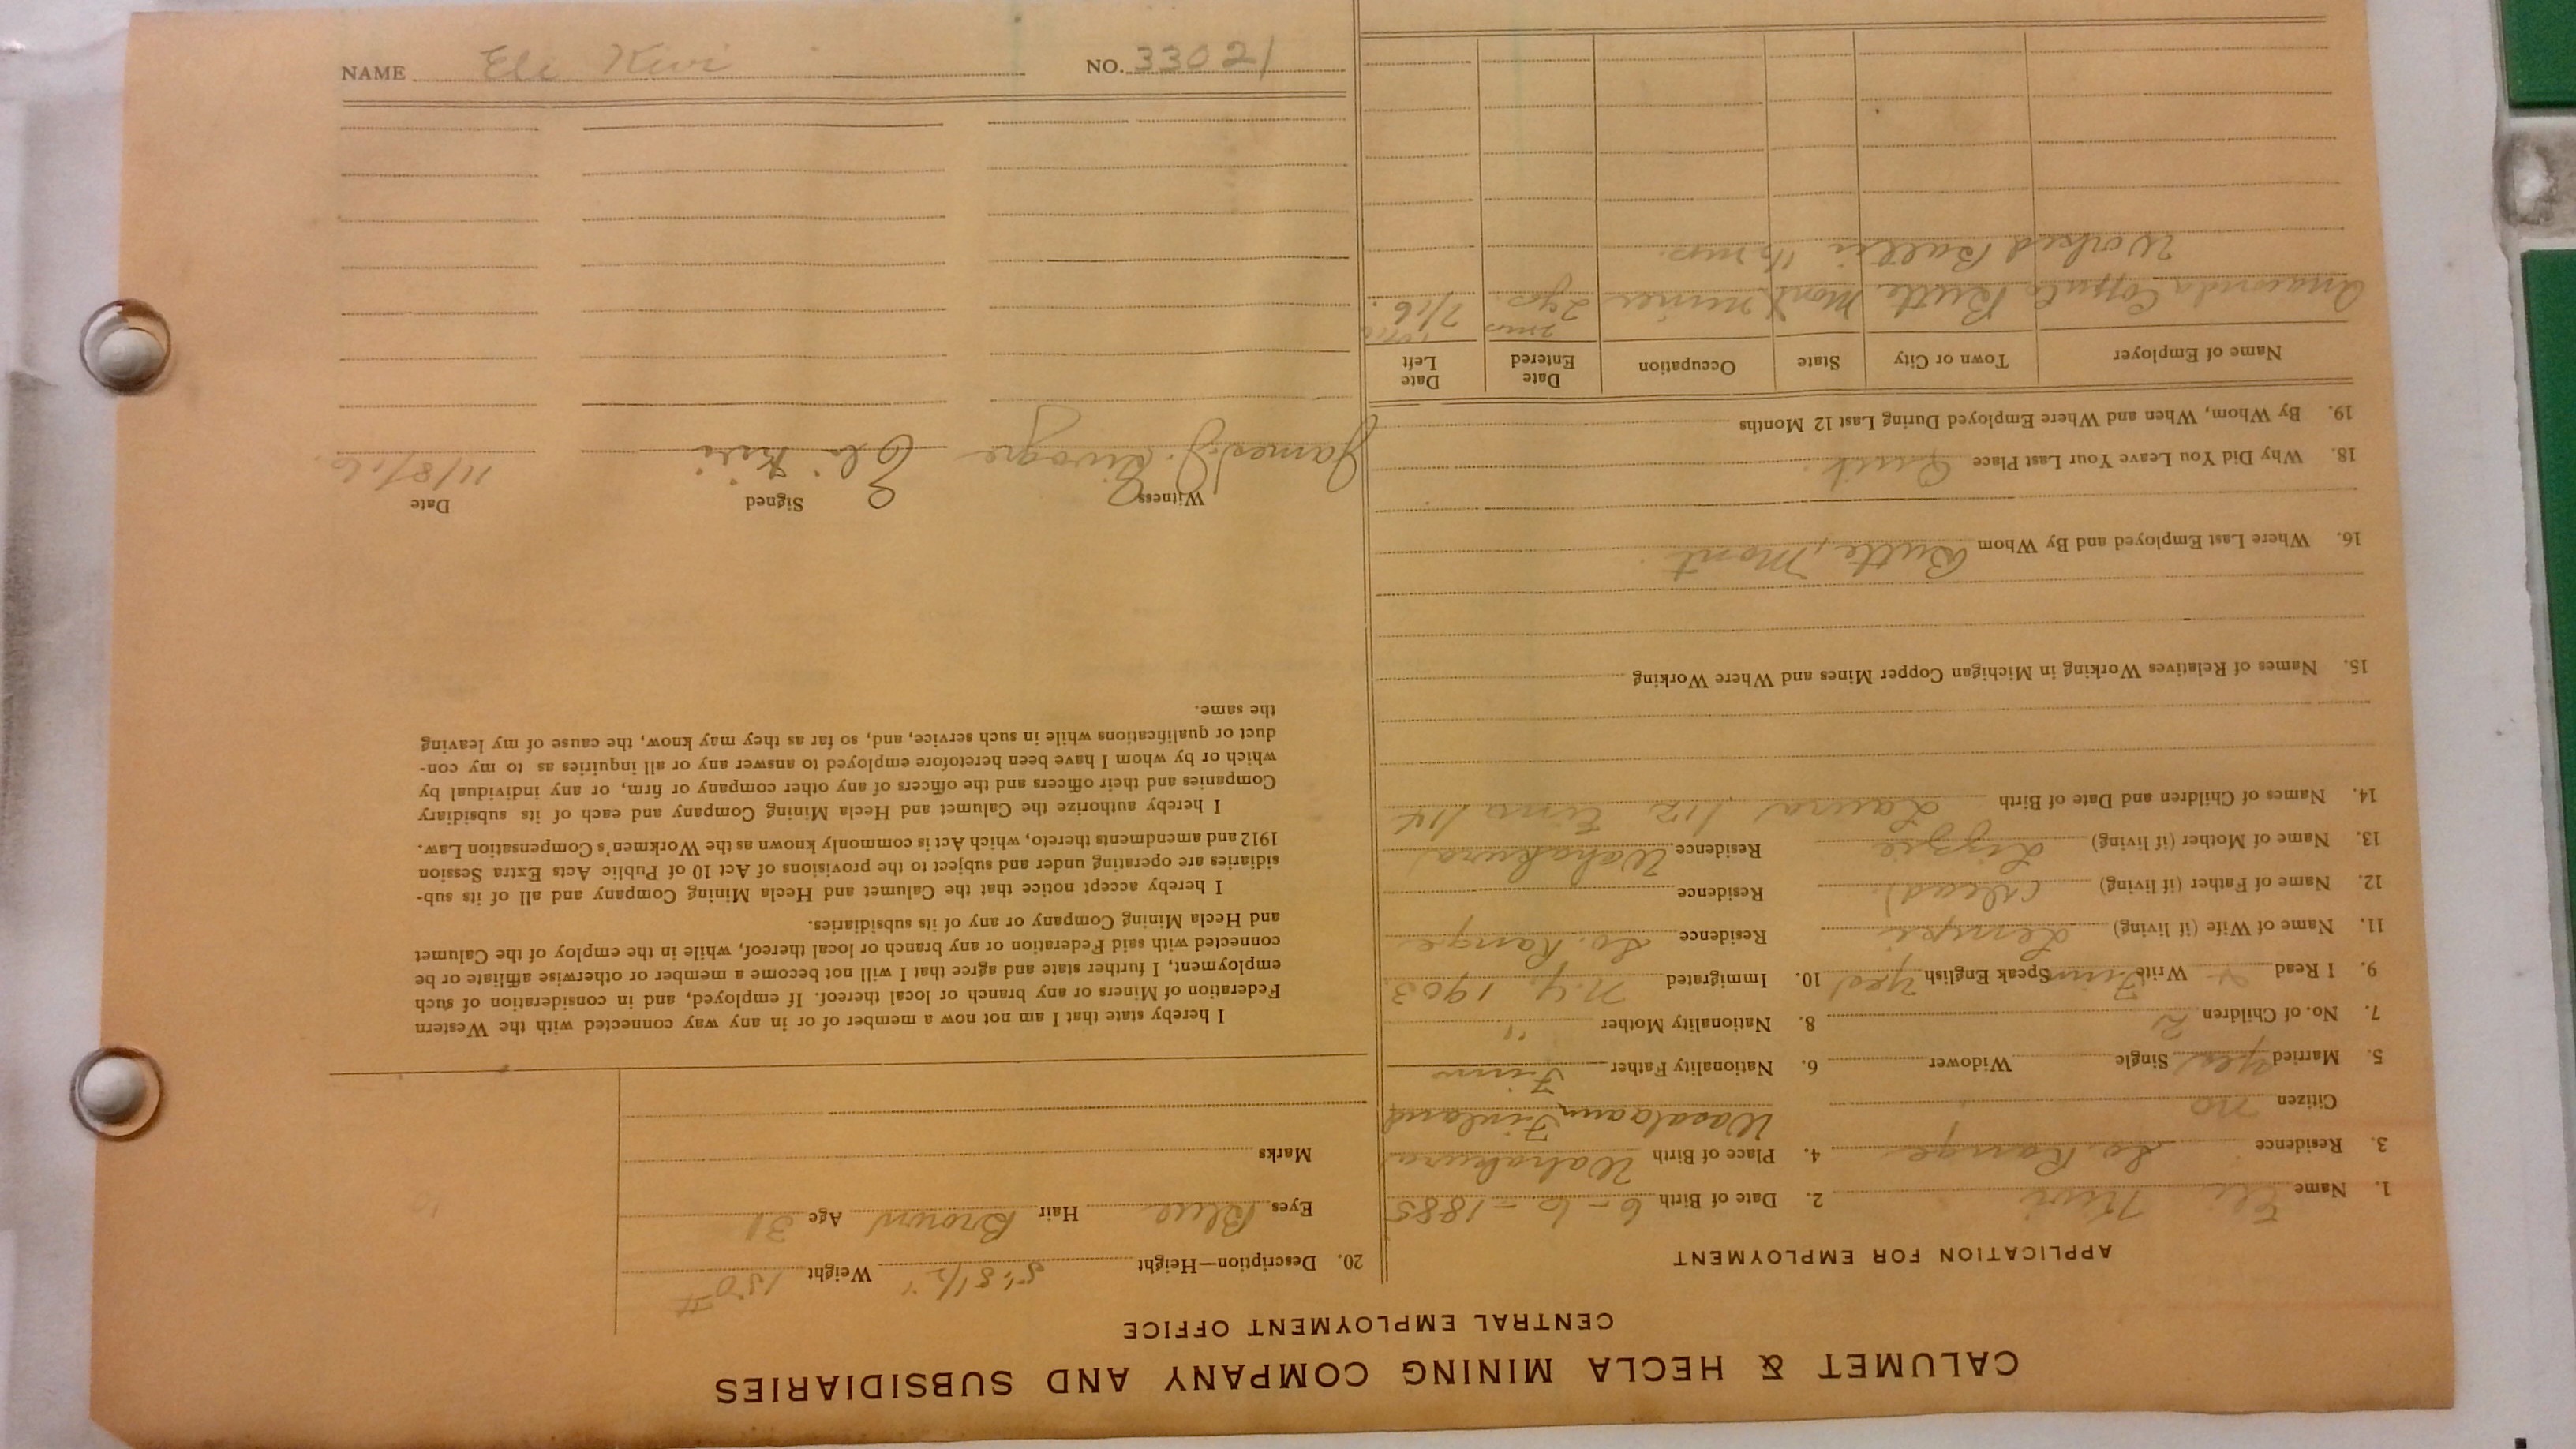 CALUMET & HECLA MINING COMPANY AND SUBSIDIARIES
CENTRAL EMPLOYMENT OFFICE
APPLICATION FOR EMPLOYMENT
1. Name Eli Kivi 2. Date of Birth 6-6-1885
3. Residence So. Range 4. Place of Birth
Citizen no Finland
5. Married yes Single Widower 6. Nationality Father Finn
7. No. of Children 2 8. Nationality Mother "
9. I Read & Write Finn Speak English yes 10. Immigrated N.Y. 1903
11. Name of Wife (if living) Lempi Residence So. Range
12. Name of Father (if living) (dead) Residence
13. Name of Mother (if living) Lizzie Residence
14. Names of Children and Date of Birth Laura /12 /14
15. Names of Relatives Working in Michigan Copper Mines and Where Working
16. Where Last Employed and By Whom Butte, Mont.
18. Why Did You Leave Your Last Place Quit.
19. By Whom, When and Where Employed During Last 12 Months
Name of Employer Town or City State Occupation Date Entered Date Left
Anaconda Copper Co Butte Mont miner 2 yrs. 7/16.
Worked mos.
20. Description—Height 5' 8 1/2" Weight 150 #
Eyes Blue Hair Brown Age 31
Marks
I hereby state that I am not now a member of or in any way connected with the Western
Federation of Miners or any branch or local thereof. If employed, and in consideration of such
employment, I further state and agree that I will not become a member or otherwise affiliate or be
connected with said Federation or any branch or local thereof, while in the employ of the Calumet
and Hecla Mining Company or any of its subsidiaries.
I hereby accept notice that the Calumet and Hecla Mining Company and all of its sub-
sidiaries are operating under and subject to the provisions of Act 10 of Public Acts Extra Session
1912 and amendments thereto, which Act is commonly known as the Workmen's Compensation Law.
I hereby authorize the Calumet and Hecla Mining Company and each of its subsidiary
Companies and their officers and the officers of any other company or firm, or any individual by
which or by whom I have been heretofore employed to answer any or all inquiries as to my con-
duct or qualifications while in such service, and, so far as they may know, the cause of my leaving
the same.
Witness Signed Date
James J. Eli Kivi 11/8/16.
NAME Eli Kivi NO. 33021